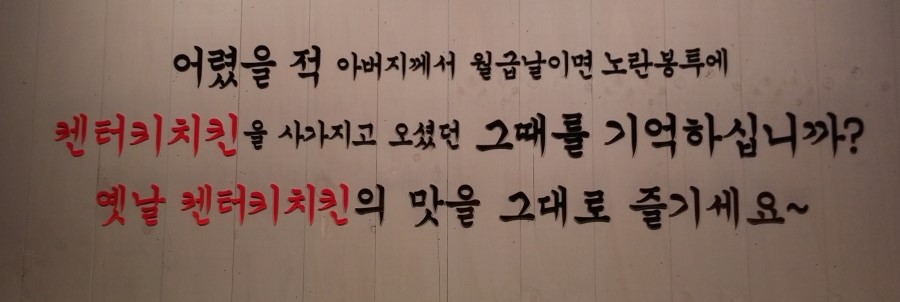 어렸을 적 아버지께서 월급날이면 노란봉투에
켄터키치킨을 사가지고 오셨던 그때를 기억하십니까?
옛날 켄터키치킨의 맛을 그대로 즐기세요~